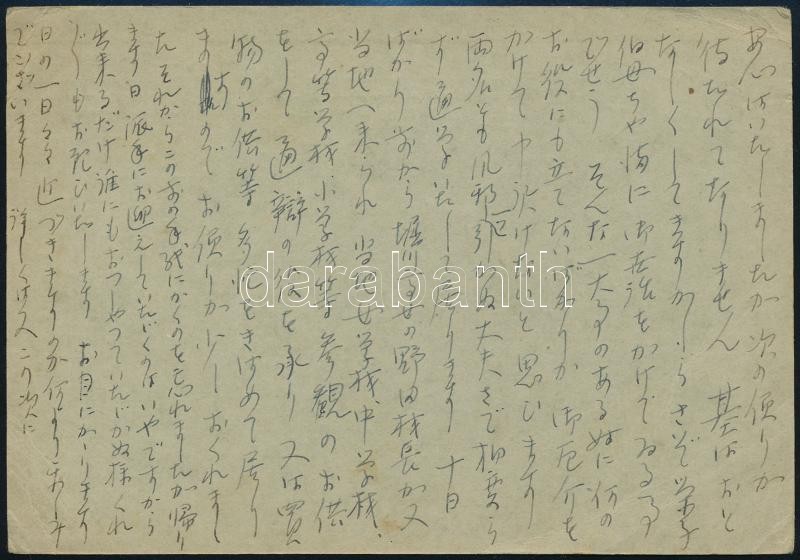 安心はいたしましたが 次の便りが
待たれてなりません 基はおと
なしくしてますかしら さぞ 栄子
伯母ちや様に御世話をかけてゐる事
でせう そんな大事のある時に何の
お役にも立てないばかりか御厄介を
かけて申訳けないと思ひます
両名とも風邪引かぬ大丈夫さで相変ら
ず通学いたして居ります 十日
ばかり前から堀川高女の野田校長が又
当地へ来られ 当地女学校、中学校、
高等学校、小学校等参観のお供
をして 通辯の役を承り 又は買
物のお供等 多忙をきはめて居り
ますので お便りが少しおくれまし
た それからこの前の手紙にかくのを忘れましたが帰り
ます日 派手にお迎えしていたゞくのはいやですから
出来るだけ誰にもおつしやつていたゞかぬ様くれ
ぐれもお願ひいたします お目にかゝります
日の一日々々近づきますのが何より楽しみ
でございます 詳しくは又この次に
darabanth